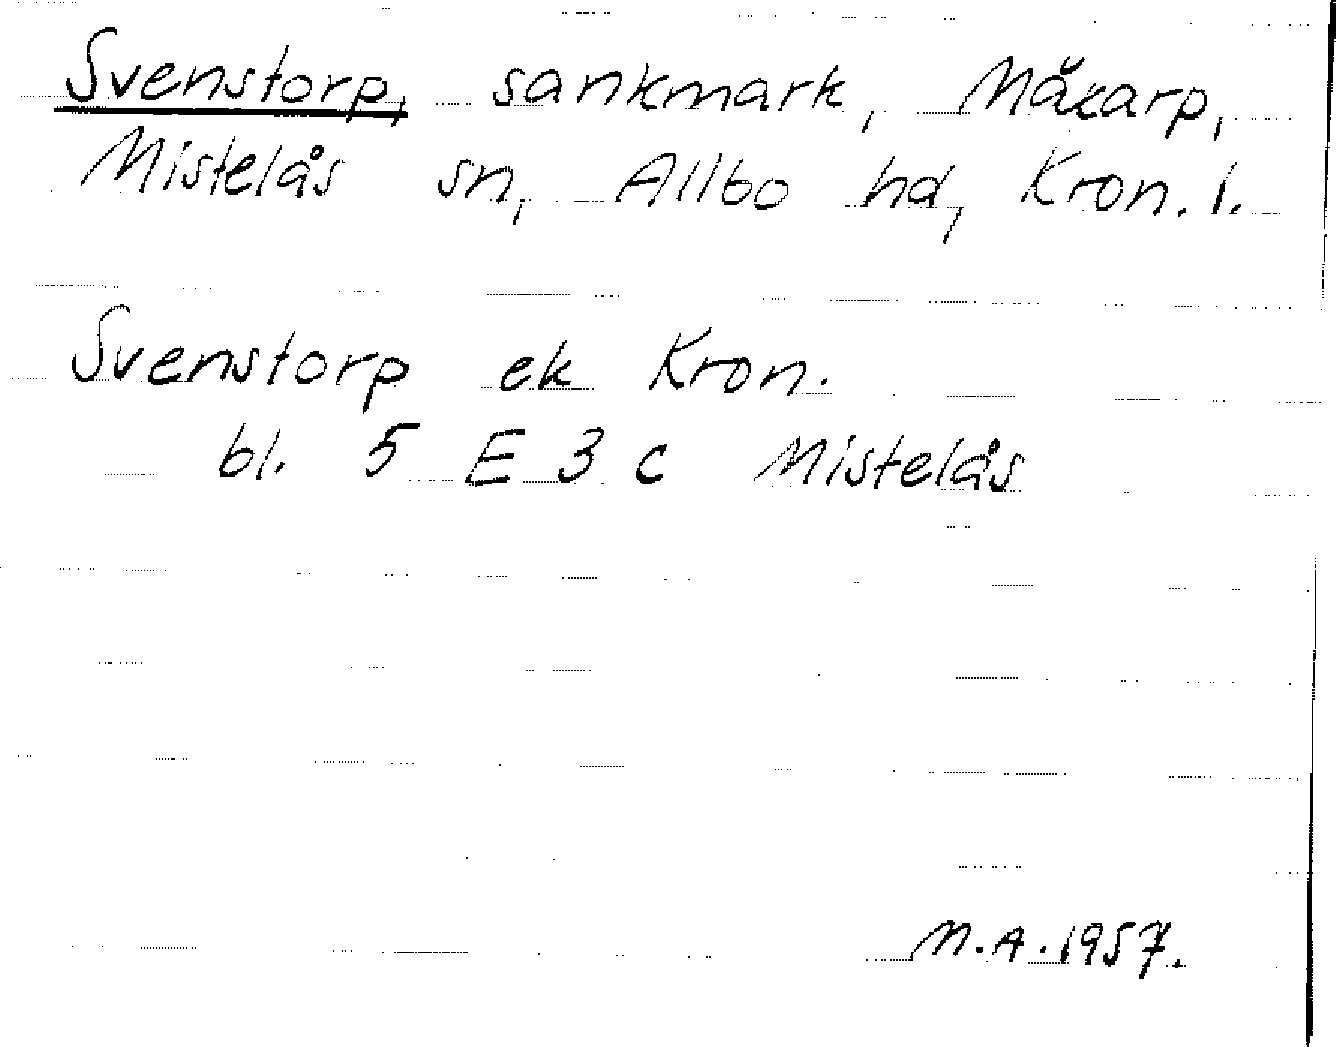 Svenstorp, sankmark, Måkarp,
Mistelås sn, Allbo hd, Kron. l.
Svenstorp ek Kron.
bl. 5 E 3 c Mistelås
N.A. 1957.